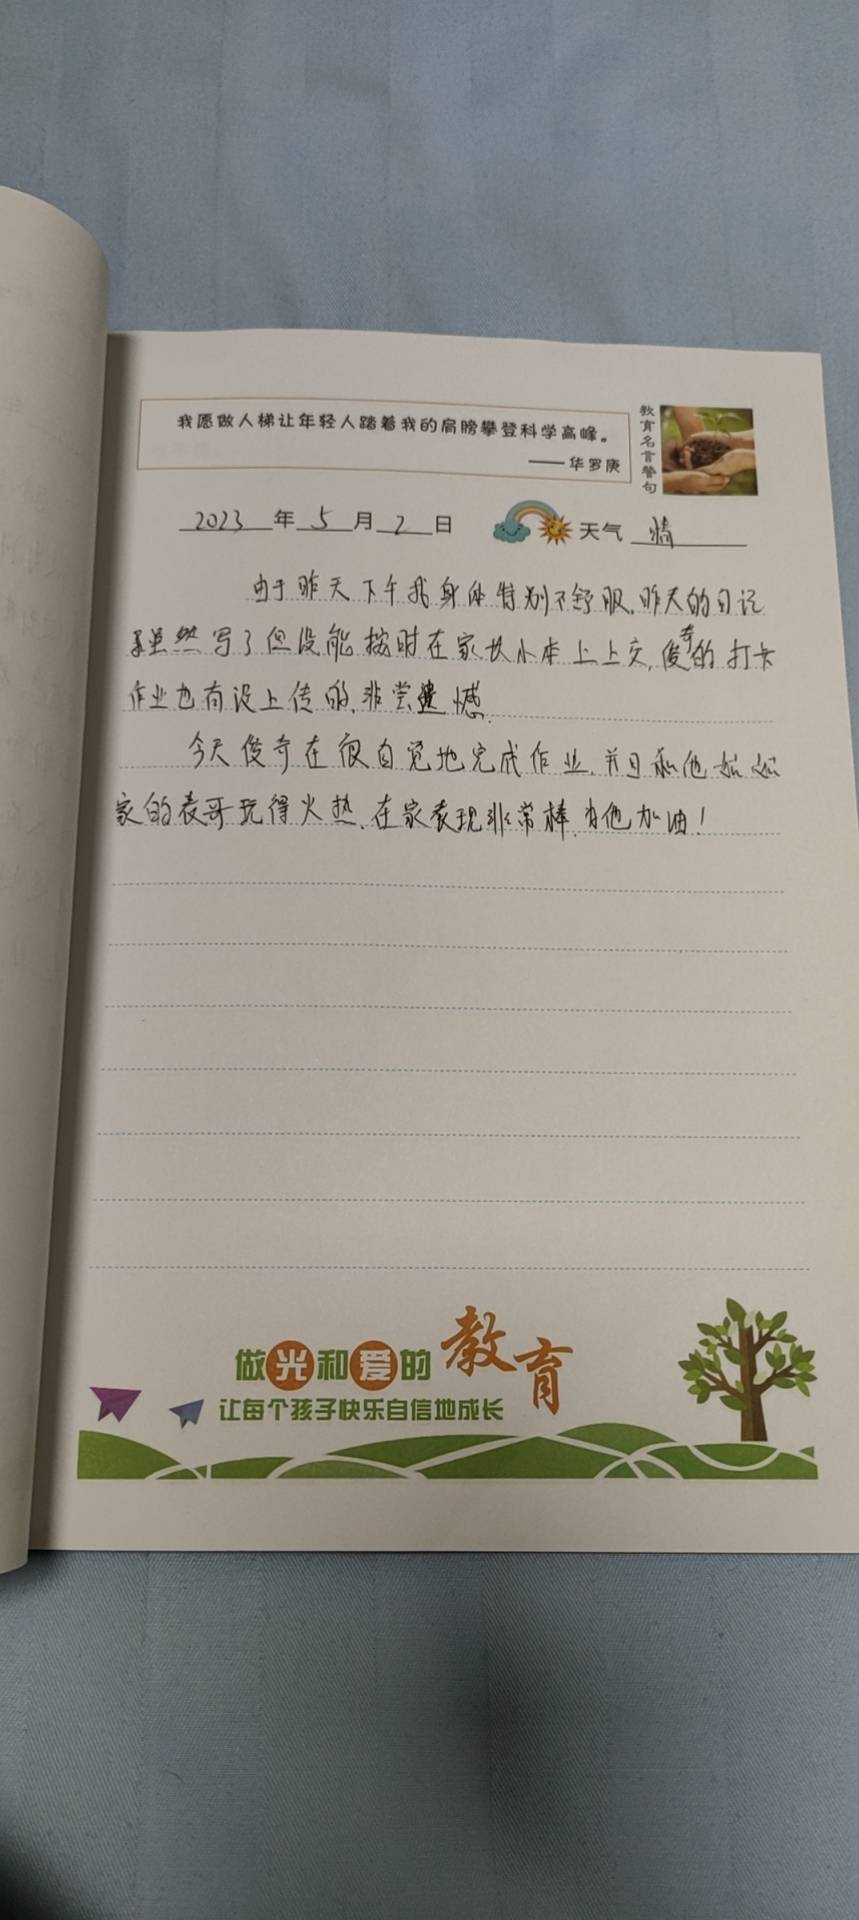 我愿做人梯让年轻人踏着我的肩膀攀登科学高峰。
——华罗庚
教育名言警句
2023年5月2日 天气 晴
由于昨天下午我身体特别不舒服,昨天的日记
虽然写了但没能按时在家校小本上上交,俊奇的打卡
作业也有没上传的,非常遗憾.
今天俊奇在很自觉地完成作业,并且和他姑姑
家的表哥玩得火热,在家表现非常棒,为他加油!
做光和爱的教育
让每个孩子快乐自信地成长